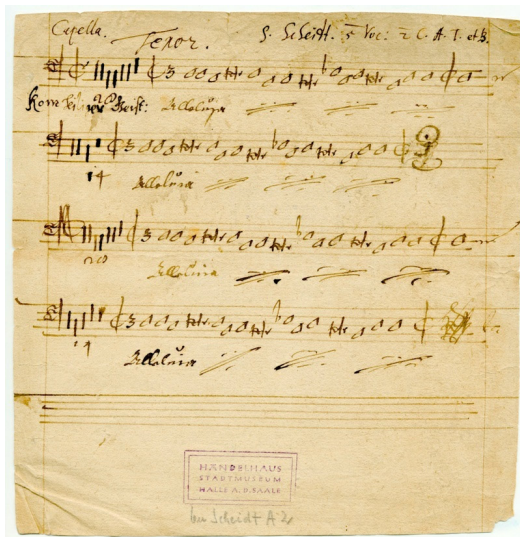 Capella. Tenor. S. Scheidt. 5 Voc: 2 C. A. T. et B.
3
Kom heiliger Geist: Alleluya
20
3
14 Alleluia
3
20
Alleluia
3
14
Alleluia
HÄNDELHAUS
STADTMUSEUM
HALLE A.D.SAALE
Scheidt A 2